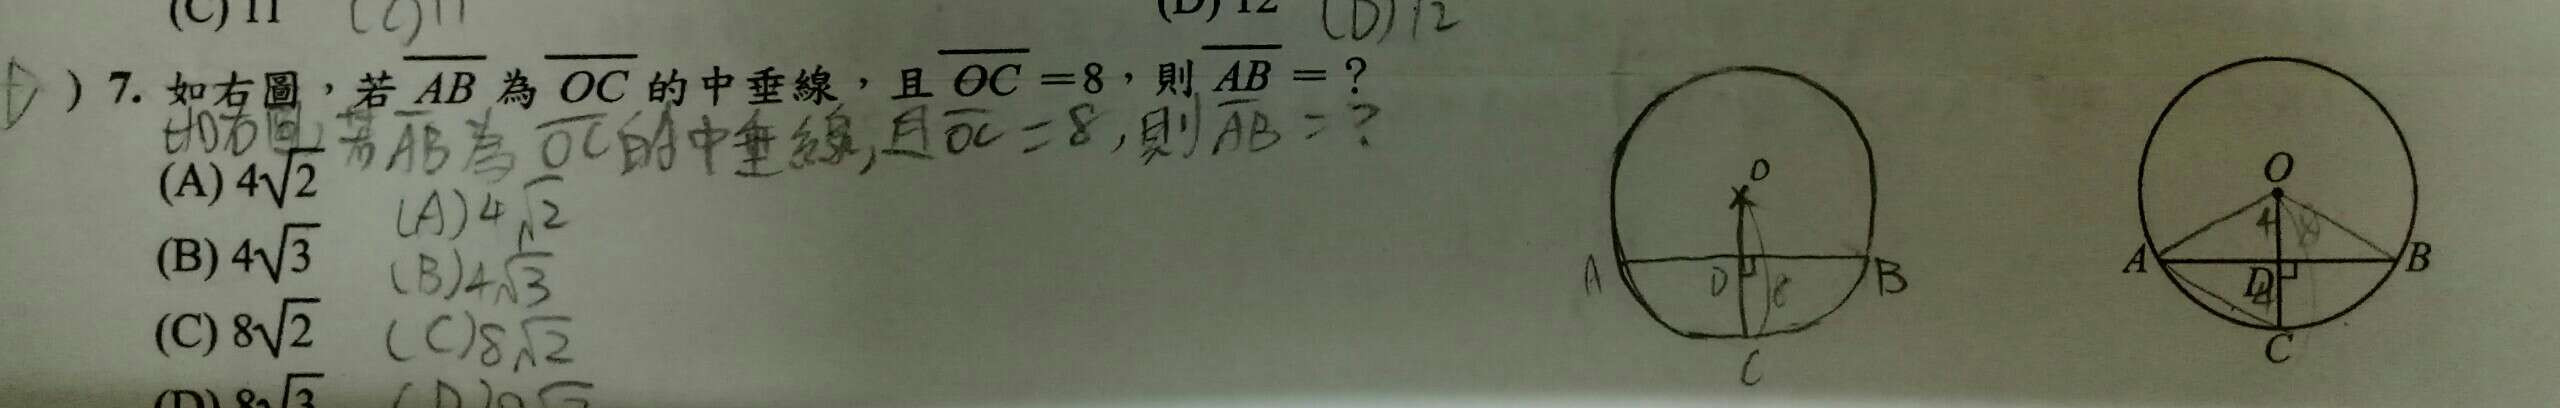 (C) 11 (C) 11 (D) 12 (D) 12
D ) 7. 如右圖，若 AB 為 OC 的中垂線，且 OC =8，則 AB = ?
如右圖,若AB為OC的中垂線,且OC=8,則AB=?
(A) 4√2 (A)4√2
(B) 4√3 (B)4√3
(C) 8√2 (C)8√2
(D) 8√3 (D)
O
A D 8 B
C
O
4 8
A D B
4
C